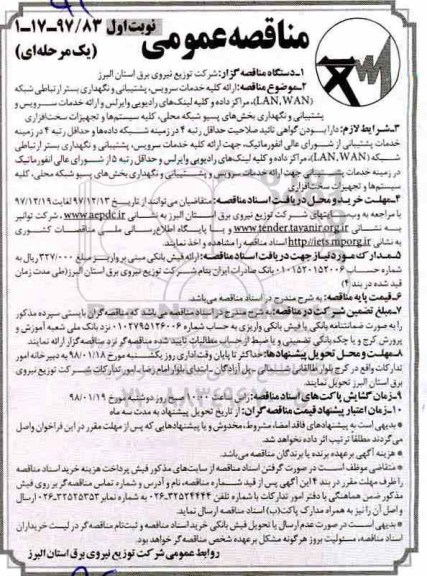 نوبت اول ۹۷/۸۳-۱۷-۱
مناقصه عمومی
(یک مرحله‌ای)
۱-دستگاه مناقصه گزار: شرکت توزیع نیروی برق استان البرز
۲-موضوع مناقصه: ارائه کلیه خدمات سرویس، پشتیبانی و نگهداری بستر ارتباطی شبکه
(LAN,WAN)، مراکز داده و کلیه لینک‌های رادیویی وایرلس و ارائه خدمات سرویس و
پشتیبانی و نگهداری بخش‌های پسیو شبکه محلی، کلیه سیستم‌ها و تجهیزات سخت‌افزاری
۳-شرایط لازم: دارا بودن گواهی تائید صلاحیت حداقل رتبه ۴ در زمینه شبکه داده‌ها و حداقل رتبه ۴ در زمینه
خدمات پشتیبانی از شورای عالی انفورماتیک، جهت ارائه کلیه خدمات سرویس، پشتیبانی و نگهداری بستر ارتباطی
شبکه (LAN,WAN)، مراکز داده و کلیه لینک‌های رادیویی وایرلس و حداقل رتبه ۵ از شورای عالی انفورماتیک
در زمینه خدمات پشتیبانی جهت ارائه خدمات سرویس و پشتیبانی و نگهداری بخش‌های پسیو شبکه محلی، کلیه
سیستم‌ها و تجهیزات سخت‌افزاری
۴-مهلت خرید و محل دریافت اسناد مناقصه: متقاضیان می‌توانند از تاریخ ۹۷/۱۲/۱۳ لغایت ۹۷/۱۲/۱۹
با مراجعه به وب سایتهای شرکت توزیع نیروی برق استان البرز به نشانی www.aepdc.ir، شرکت توانیر
به نشانی www.tender.tavanir.org.ir و یا پایگاه اطلاع‌رسانی ملی مناقصات کشوری
به نشانی http//iets.mporg.ir اسناد مناقصه را مشاهده و اخذ نمایند.
۵-مدارک مورد نیاز جهت دریافت اسناد مناقصه: ارائه فیش بانکی مبنی بر واریز مبلغ ۳۲۷/۰۰۰ ریال به
شماره حساب ۰۱۰۱۵۲۰۱۵۲۰۰۶ بانک صادرات ایران بنام شرکت توزیع نیروی برق استان البرز (طی مدت زمان
قید شده در بند ۴)
۶-قیمت پایه مناقصه: به شرح مندرج در اسناد مناقصه می‌باشد.
۷-مبلغ تضمین شرکت در مناقصه: به شرح مندرج در اسناد مناقصه می‌باشد که مناقصه‌گران بایستی سپرده مذکور
را به صورت ضمانتنامه بانکی یا فیش بانکی واریزی به حساب شماره ۰۱۰۲۷۹۵۱۲۶۰۰۶ نزد بانک ملی شعبه آموزش و
پرورش کرج و یا چک بانکی تضمینی و یا ضبط از حساب مطالبات تایید شده مناقصه‌گر نزد مناقصه‌گزار ارائه نمایند
۸-مهلت و محل تحویل پیشنهادها: حداکثر تا پایان وقت اداری روز یکشنبه مورخ ۹۸/۰۱/۱۸ به دبیرخانه امور
تدارکات واقع در کرج بلوار طالقانی شمالی - پل آزادگان - ابتدای بلوار امام رضا- امور تدارکات شرکت توزیع نیروی
برق استان البرز تحویل نمایند.
۹-زمان گشایش پاکت‌های اسناد مناقصه: راس ساعت ۱۰:۰۰ صبح روز دوشنبه مورخ ۹۸/۰۱/۱۹
۱۰-زمان اعتبار پیشنهاد قیمت مناقصه گران: از تاریخ تحویل پیشنهاد به مدت سه ماه
* بدیهی است به پیشنهادهای فاقد امضاء، مشروط، مخدوش و یا پیشنهادهایی که پس از مهلت مقرر در این فراخوان واصل
می‌گردند مطلقاً ترتیب اثر داده نخواهد شد.
* هزینه آگهی برعهده برنده یا برندگان مناقصه می‌باشد.
* متقاضی موظف است در صورت گرفتن اسناد مناقصه از سایت‌های مذکور فیش پرداخت هزینه خرید اسناد مناقصه
را ظرف مهلت مقرر در بند ۴ این آگهی پس از قید شماره مناقصه، نام و آدرس و شماره تماس مناقصه‌گر بر روی فیش
مذکور ضمن هماهنگی با دفتر امور تدارکات با شماره تلفن ۳۲۵۲۴۴۴۴-۰۲۶ به شماره نمابر ۳۲۵۲۵۳۵۲-۰۲۶ ارسال
و اصل آن را نیز به همراه مدارک پاکت (ب) اسناد مناقصه ارسال نماید.
* بدیهی است در صورت عدم ارسال یا تحویل فیش بانکی خرید اسناد مناقصه و ثبت‌نام مناقصه‌گر در لیست خریداران
اسناد مناقصه، مسئولیت بروز هرگونه مشکل برعهده شخص مناقصه‌گر خواهد بود.
روابط عمومی شرکت توزیع نیروی برق استان البرز